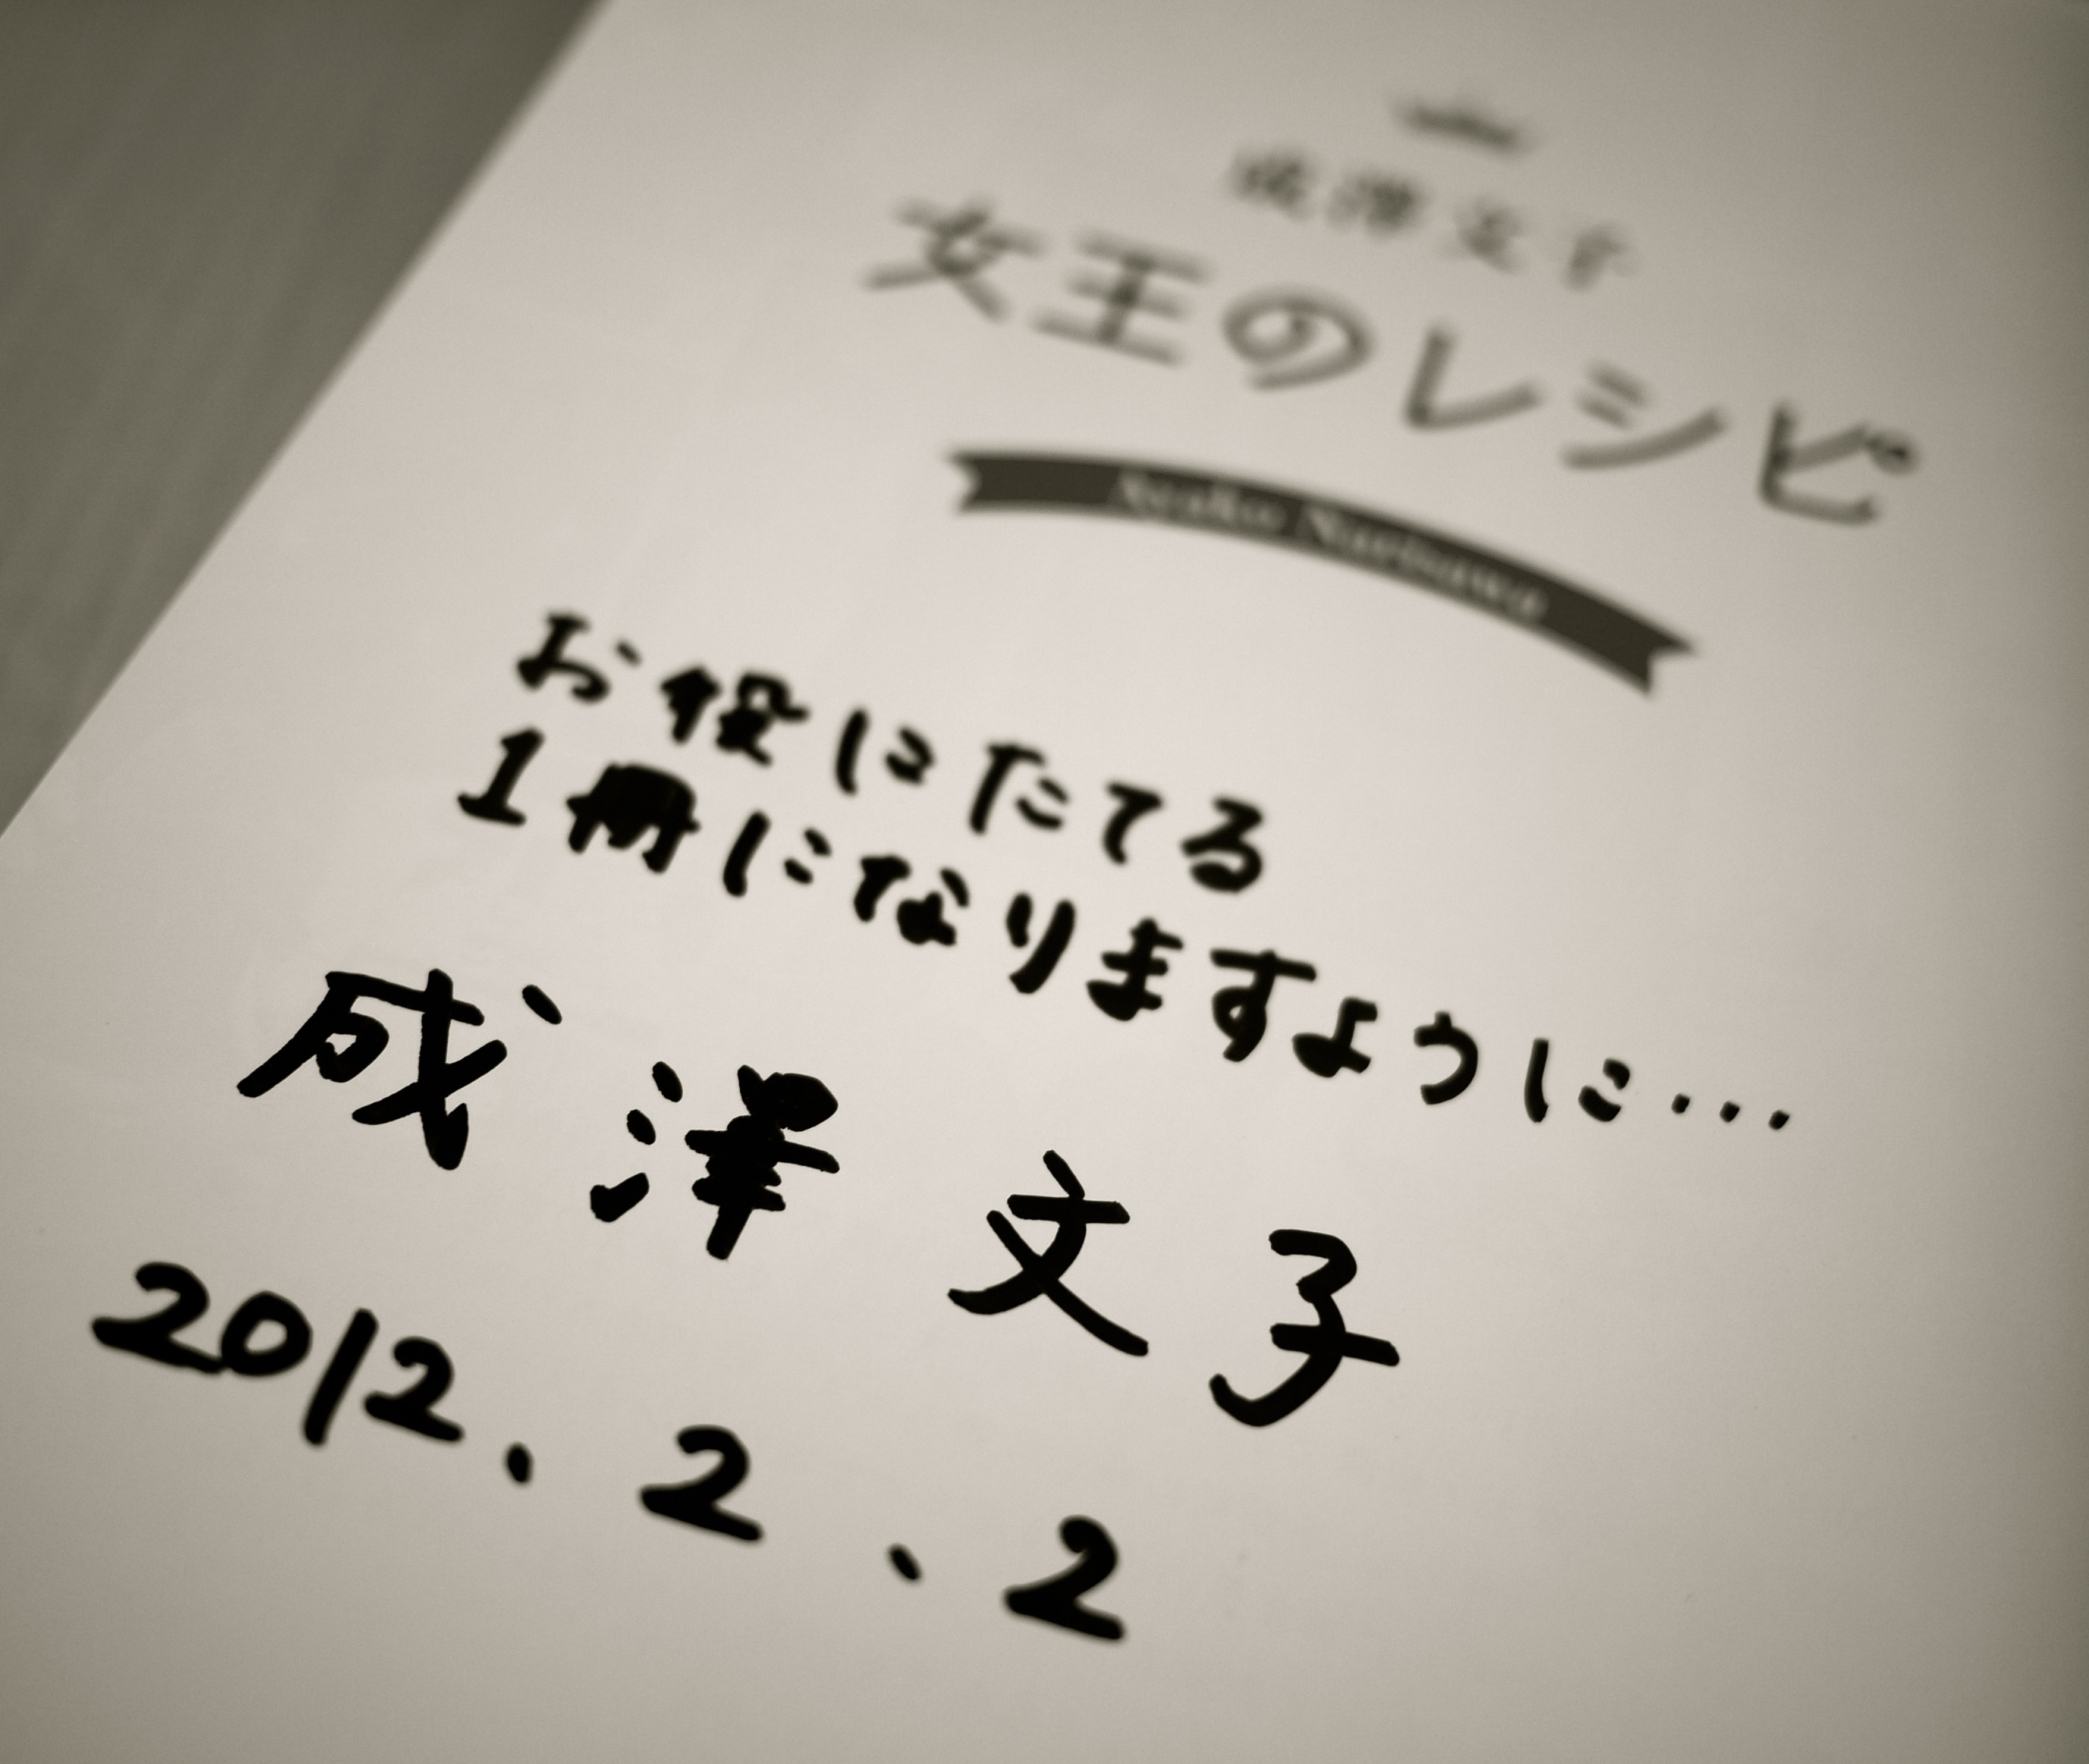 成澤文子
女王のレシピ
Ayako Narisawa
お役にたてる
1冊になりますように…
成澤 文子
2012.2.2